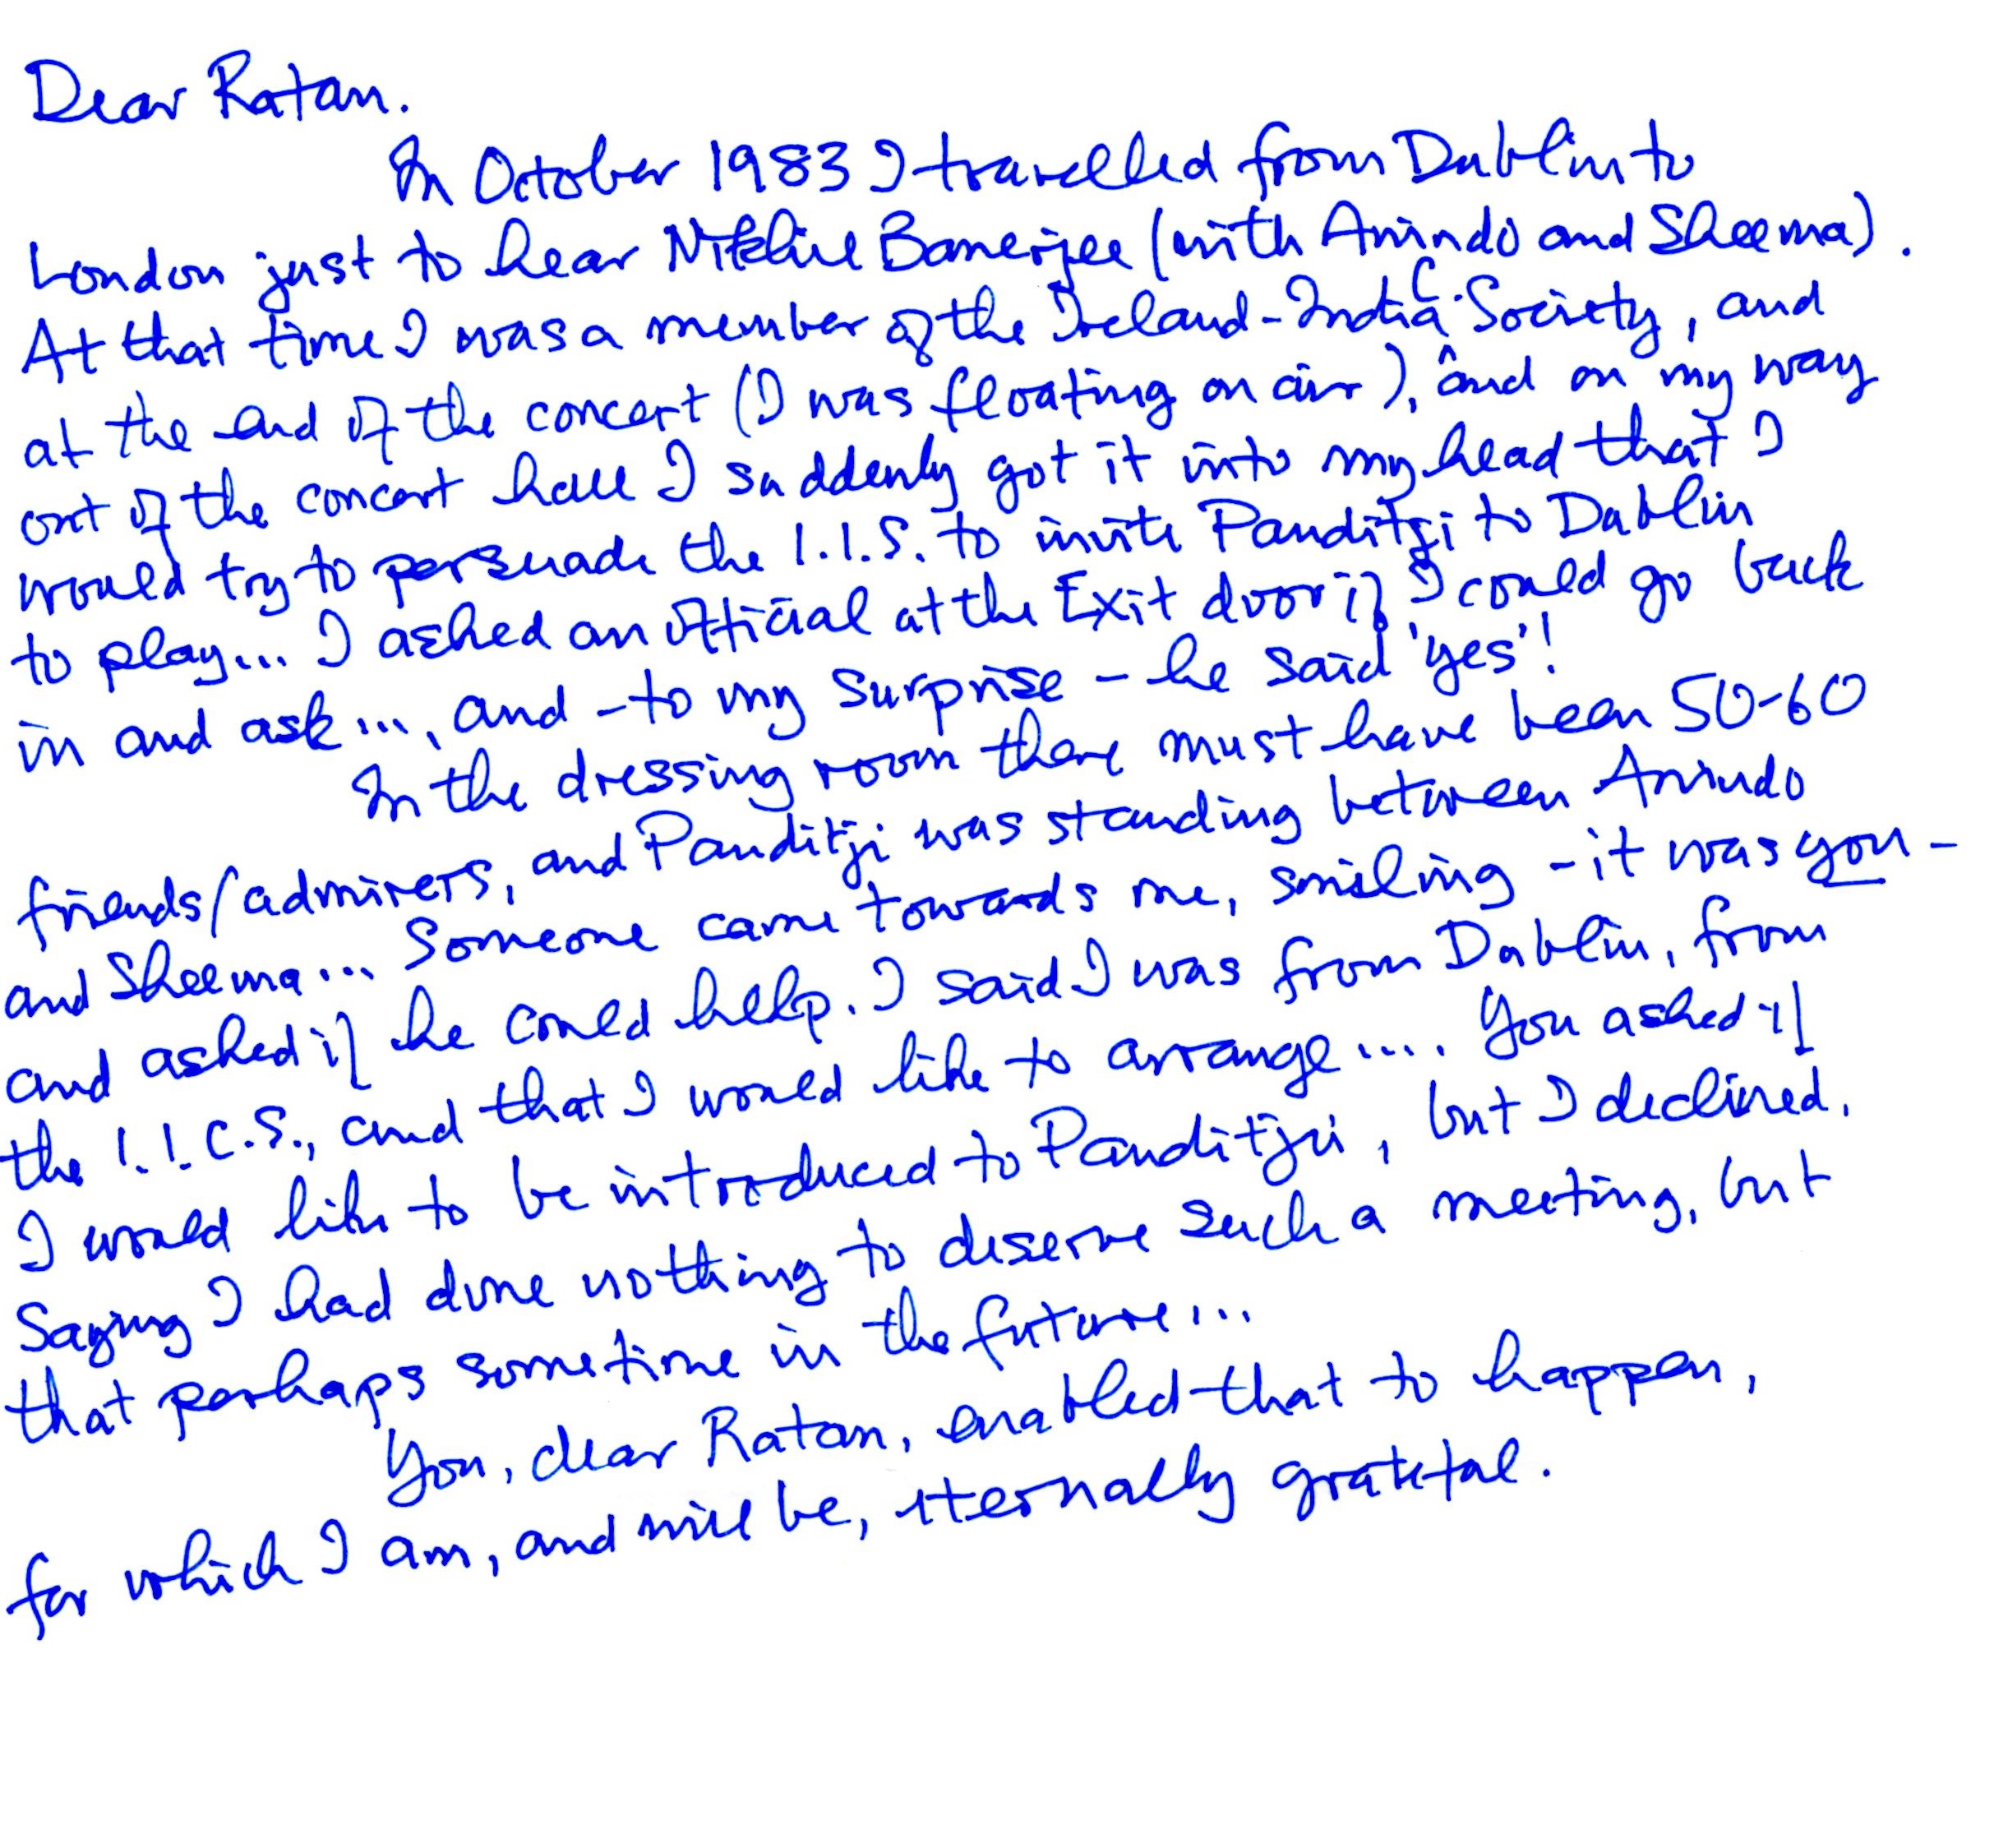 Dear Ratan.
In October 1983 I travelled from Dublin to
London just to hear Nikhil Banerjee (with Anindo and Sheema).
At that time I was a member of the Ireland-India C. Society, and
at the end of the concert (I was floating on air), and on my way
out of the concert hall I suddenly got it into my head that I
would try to persuade the I.I.S. to invite Panditji to Dublin
to play... I asked an official at the Exit door if I could go back
in and ask..., and - to my surprise - he said 'yes'!
In the dressing room there must have been 50-60
friends/admirers, and Panditji was standing between Anindo
and Sheema... Someone came towards me, smiling - it was you -
and asked if he could help. I said I was from Dublin, from
the I.I.C.S., and that I would like to arrange.... You asked if
I would like to be introduced to Panditji, but I declined,
Saying I had done nothing to deserve such a meeting, but
that perhaps sometime in the future...
You, dear Ratan, enabled that to happen,
for which I am, and will be, eternally grateful.